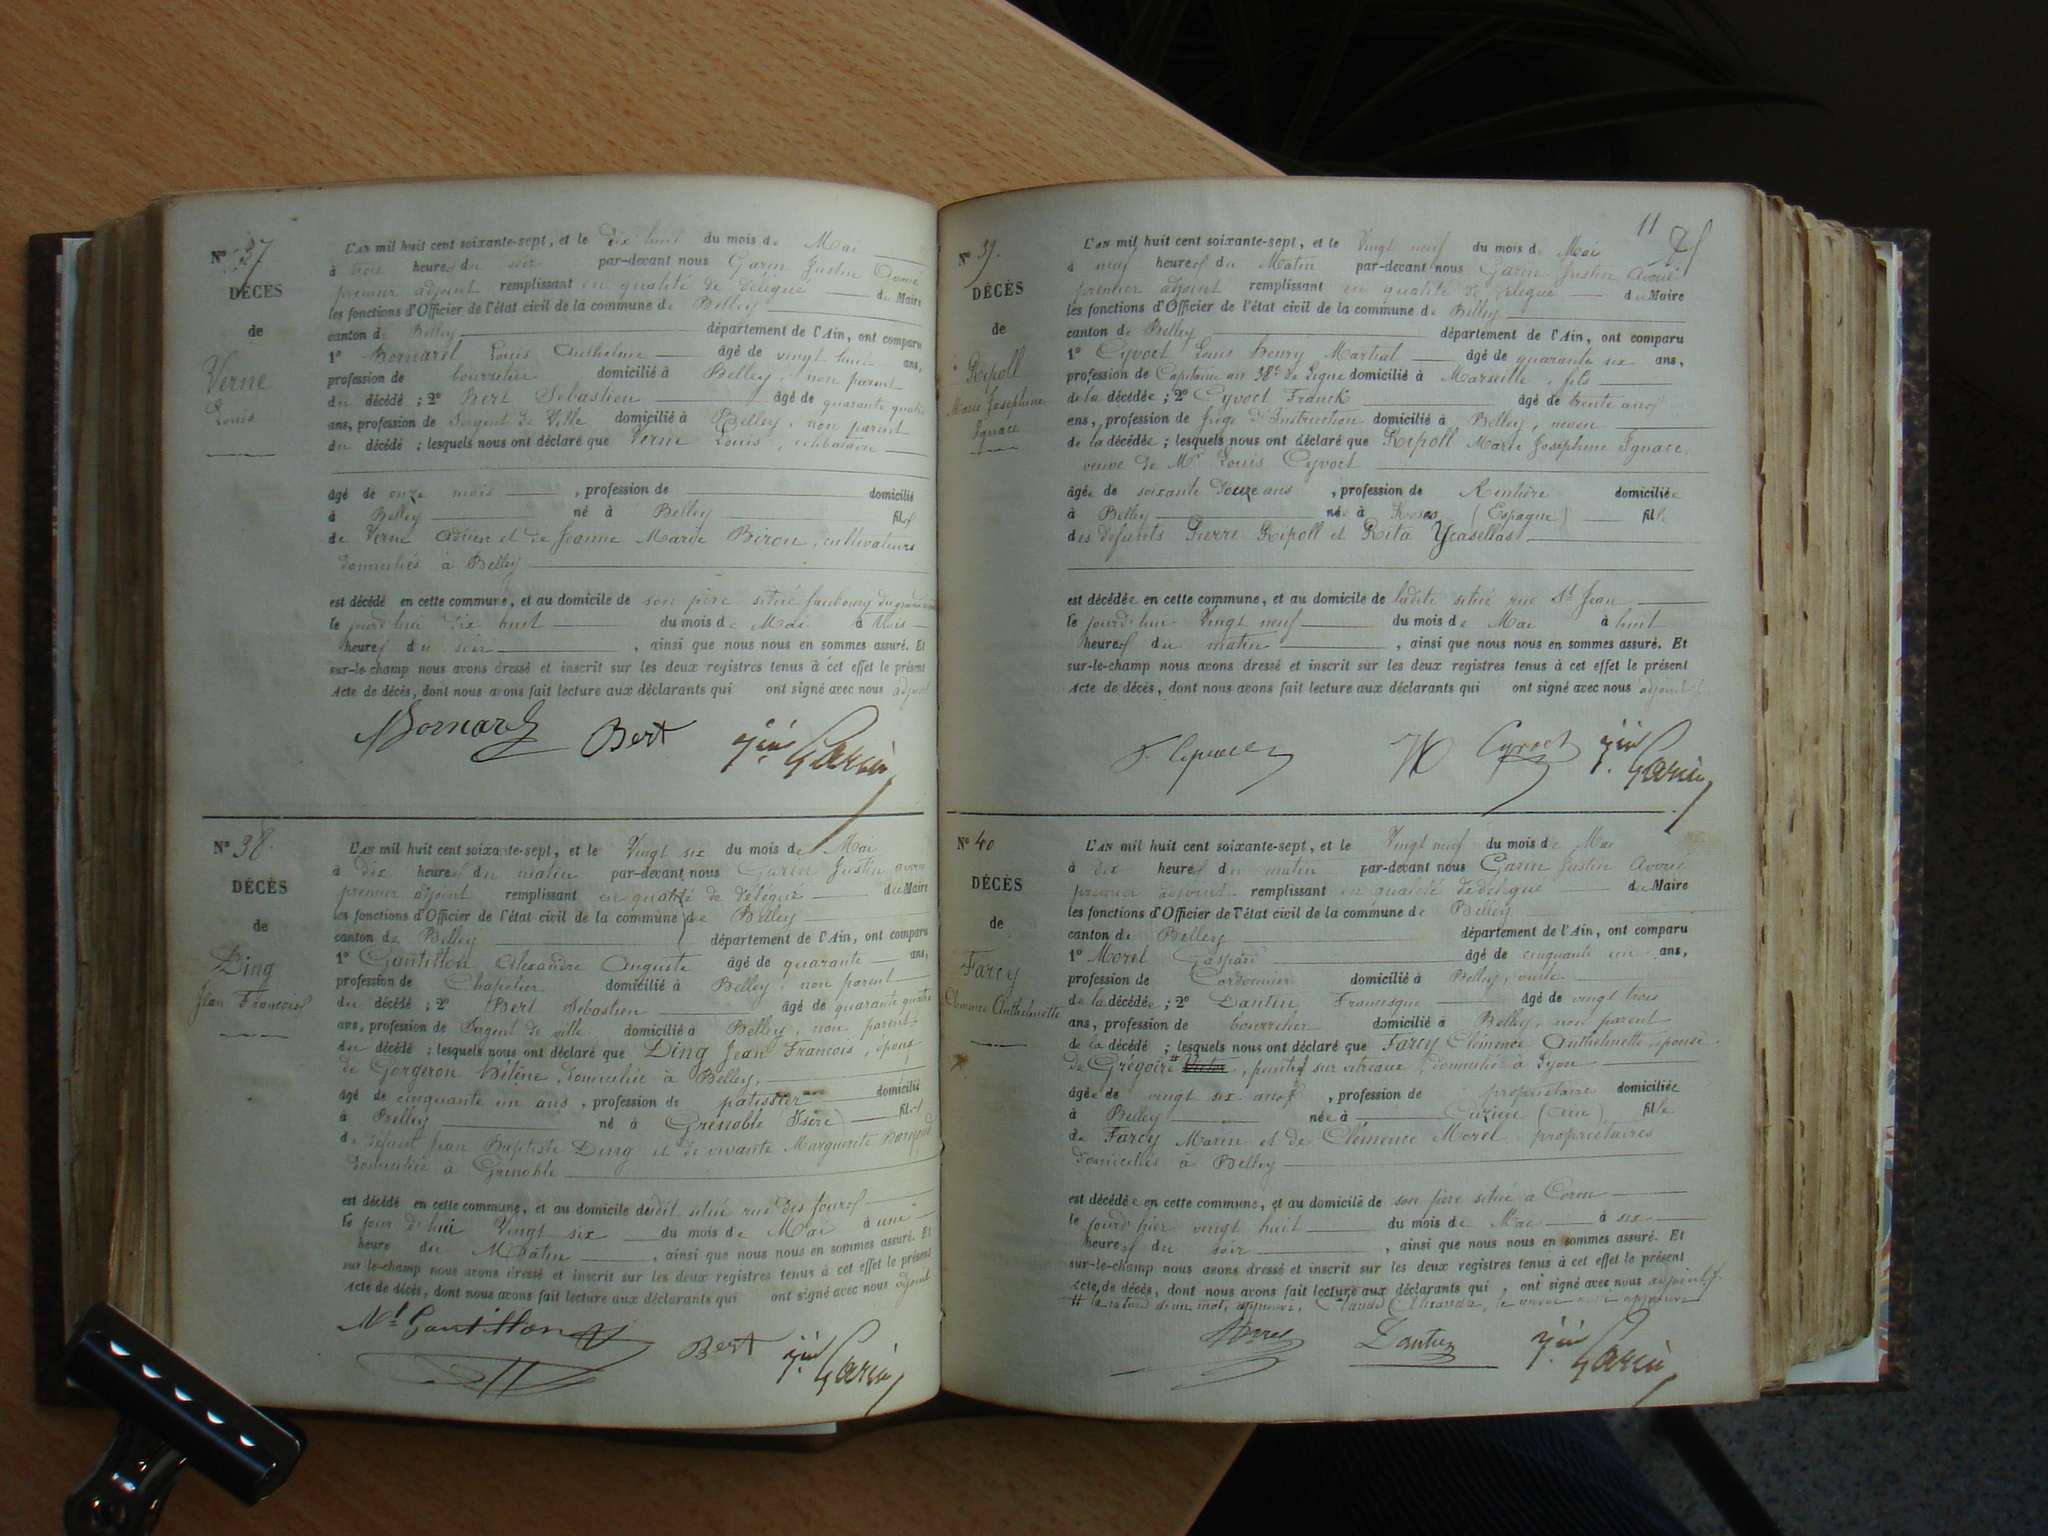 N° 37
DÉCÈS
de
Verne
Louis
L'AN mil huit cent soixante-sept, et le dix huit du mois de Mai
à trois heures du soir par-devant nous Garin Justin Avoué
premier adjoint remplissant en qualité de délégué du Maire
les fonctions d'Officier de l'état civil de la commune de Belley
canton de Belley département de l'Ain, ont comparu
1° Bornard Louis Anthelme âgé de vingt huit ans,
profession de bourrelier domicilié à Belley, non parent
du décédé ; 2° Bert Sébastien âgé de quarante quatre
ans, profession de Sergent de Ville domicilié à Belley, non parent
du décédé ; lesquels nous ont déclaré que Verne Louis, célibataire
âgé de onze mois , profession de domicilié
à Belley né à Belley fils
de Verne et de Jeanne Marie Biron, cultivateurs
domiciliés à Belley
est décédé en cette commune, et au domicile de son père situé faubourg du
le jourd'hui dix huit du mois de Mai à trois
heures du soir , ainsi que nous nous en sommes assuré. Et
sur-le-champ nous avons dressé et inscrit sur les deux registres tenus à cet effet le présent
acte de décès, dont nous avons fait lecture aux déclarants qui ont signé avec nous adjoint
Bornard Bert Jin Garin
N° 38.
DÉCÈS
de
Ding
Jean François
L'AN mil huit cent soixante-sept, et le Vingt six du mois de Mai
à dix heures du matin par-devant nous Garin Justin avoué
premier adjoint remplissant en qualité de délégué du Maire
les fonctions d'Officier de l'état civil de la commune de Belley
canton de Belley département de l'Ain, ont comparu
1° Gantillon Alexandre Auguste âgé de quarante ans,
profession de Chapelier domicilié à Belley, non parent
du décédé ; 2° Bert Sébastien âgé de quarante quatre
ans, profession de Sergent de ville domicilié à Belley, non parent
du décédé ; lesquels nous ont déclaré que Ding Jean François, époux
de Gorgeron Hélène, domiciliée à Belley,
âgé de cinquante un ans , profession de patissier domicilié
à Belley né à Grenoble (Isère) fils
de défunt Jean Baptiste Ding et de vivante Marguerite
domiciliée à Grenoble
est décédé en cette commune, et au domicile dudit situé rue des fours
le jour d'hui Vingt six du mois de Mai à une
heure du Matin , ainsi que nous nous en sommes assuré. Et
sur-le-champ nous avons dressé et inscrit sur les deux registres tenus à cet effet le présent
acte de décès, dont nous avons fait lecture aux déclarants qui ont signé avec nous adjoint
Gantillon Bert Jin Garin
11
N° 39.
DÉCÈS
de
Ripoll
Marie Joséphine
Ignace
L'AN mil huit cent soixante-sept, et le Vingt neuf du mois de Mai
à neuf heures du Matin par-devant nous Garin Justin avoué
premier adjoint remplissant en qualité de délégué du Maire
les fonctions d'Officier de l'état civil de la commune de Belley
canton de Belley département de l'Ain, ont comparu
1° Cyvoct Louis Henry Martial âgé de quarante six ans,
profession de Capitaine au 38e de ligne domicilié à Marseille, fils
de la décédée ; 2° Cyvoct Franck âgé de trente ans
ans, profession de Juge d'Instruction domicilié à Belley, neveu
de la décédée ; lesquels nous ont déclaré que Ripoll Marie Joséphine Ignace,
veuve de Mr Louis Cyvoct
âgée de soixante douze ans , profession de Rentière domiciliée
à Belley née à Roses (Espagne) fille
des défunts Pierre Ripoll et Rita Ycasellas
est décédée en cette commune, et au domicile de ladite situé rue St Jean
le jourd'hui Vingt neuf du mois de Mai à huit
heures du matin , ainsi que nous nous en sommes assuré. Et
sur-le-champ nous avons dressé et inscrit sur les deux registres tenus à cet effet le présent
acte de décès, dont nous avons fait lecture aux déclarants qui ont signé avec nous adjoint
F. Cyvoct H Cyvoct Jin Garin
N° 40
DÉCÈS
de
Farcy
Clémence Anthelmette
L'AN mil huit cent soixante-sept, et le Vingt neuf du mois de Mai
à dix heures du matin par-devant nous Garin Justin Avoué
premier adjoint remplissant en qualité de délégué du Maire
les fonctions d'Officier de l'état civil de la commune de Belley
canton de Belley département de l'Ain, ont comparu
1° Morel Gaspard âgé de cinquante un ans,
profession de Cordonnier domicilié à Belley, oncle
de la décédée ; 2° Dantin Francisque âgé de vingt trois
ans, profession de bourrelier domicilié à Belley, non parent
de la décédé ; lesquels nous ont déclaré que Farcy Clémence Anthelmette, épouse
de Grégoire # , peintre sur vitreaux, domicilié à Lyon
âgée de vingt six ans , profession de propriétaire domiciliée
à Belley née à Cuzieu (Ain) fille
de Farcy Marin et de Clémence Morel propriétaires
domiciliés à Belley
est décédée en cette commune, et au domicile de son père situé à Coron
le jourd'hier vingt huit du mois de Mai à six
heures du soir , ainsi que nous nous en sommes assuré. Et
sur-le-champ nous avons dressé et inscrit sur les deux registres tenus à cet effet le présent
acte de décès, dont nous avons fait lecture aux déclarants qui , ont signé avec nous adjoint
# la rature d'un mot, approuvé, Claude Alexandre, le renvoi aussi approuvé
Morel Dantin Jin Garin